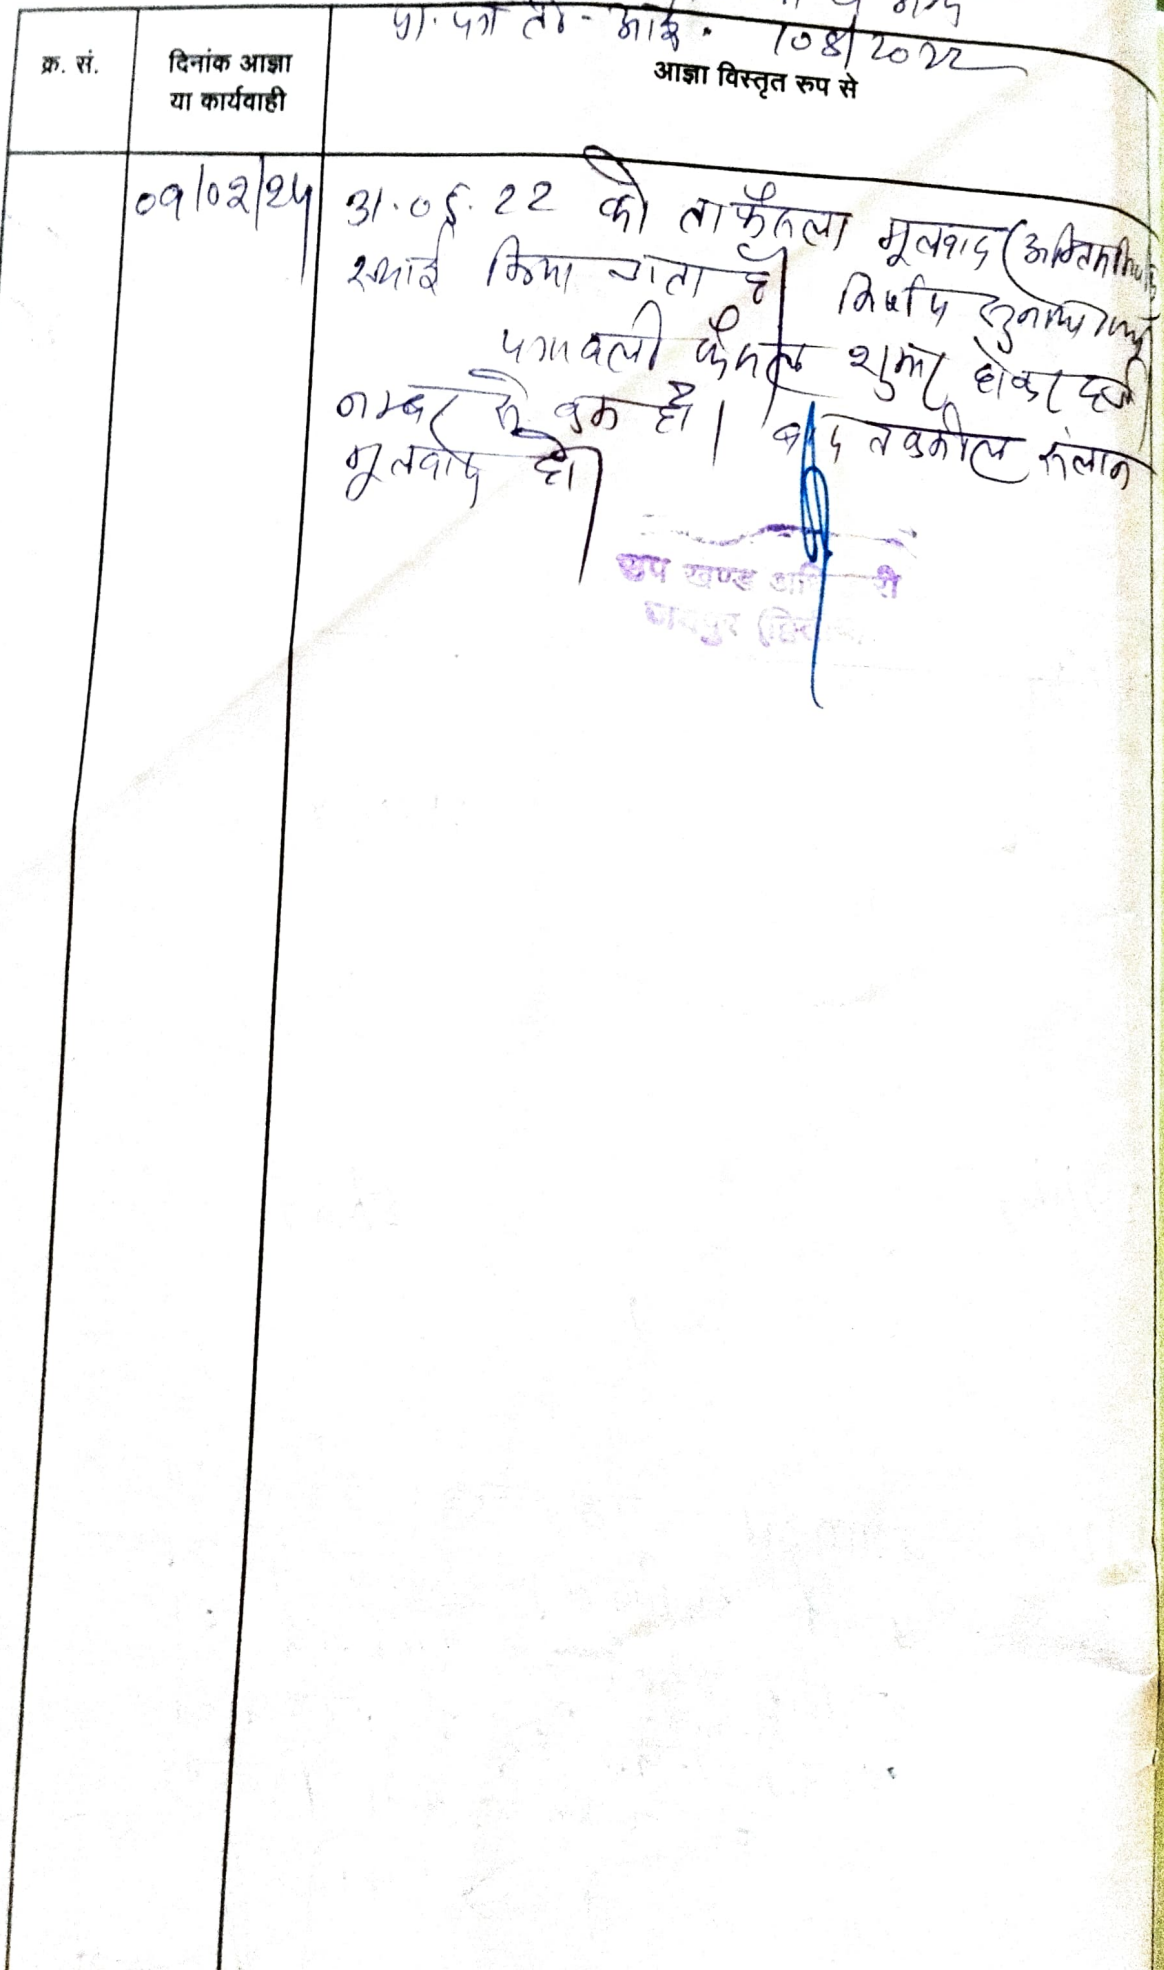 प्रा. पत्र टी- आई. 108/2022
क्र. सं.
दिनांक आज्ञा
या कार्यवाही
आज्ञा विस्तृत रूप से
09/02/24
31.05.22 को ताफैसला मूलवाद
स्थाई किया जाता है। निर्णय सुनाया गया
पत्रावली फैसल शुमार होकर दर्ज
नम्बर से कम हो। बाद तकमील संलग्न
मूलवाद हो।
उप खण्ड अधि री